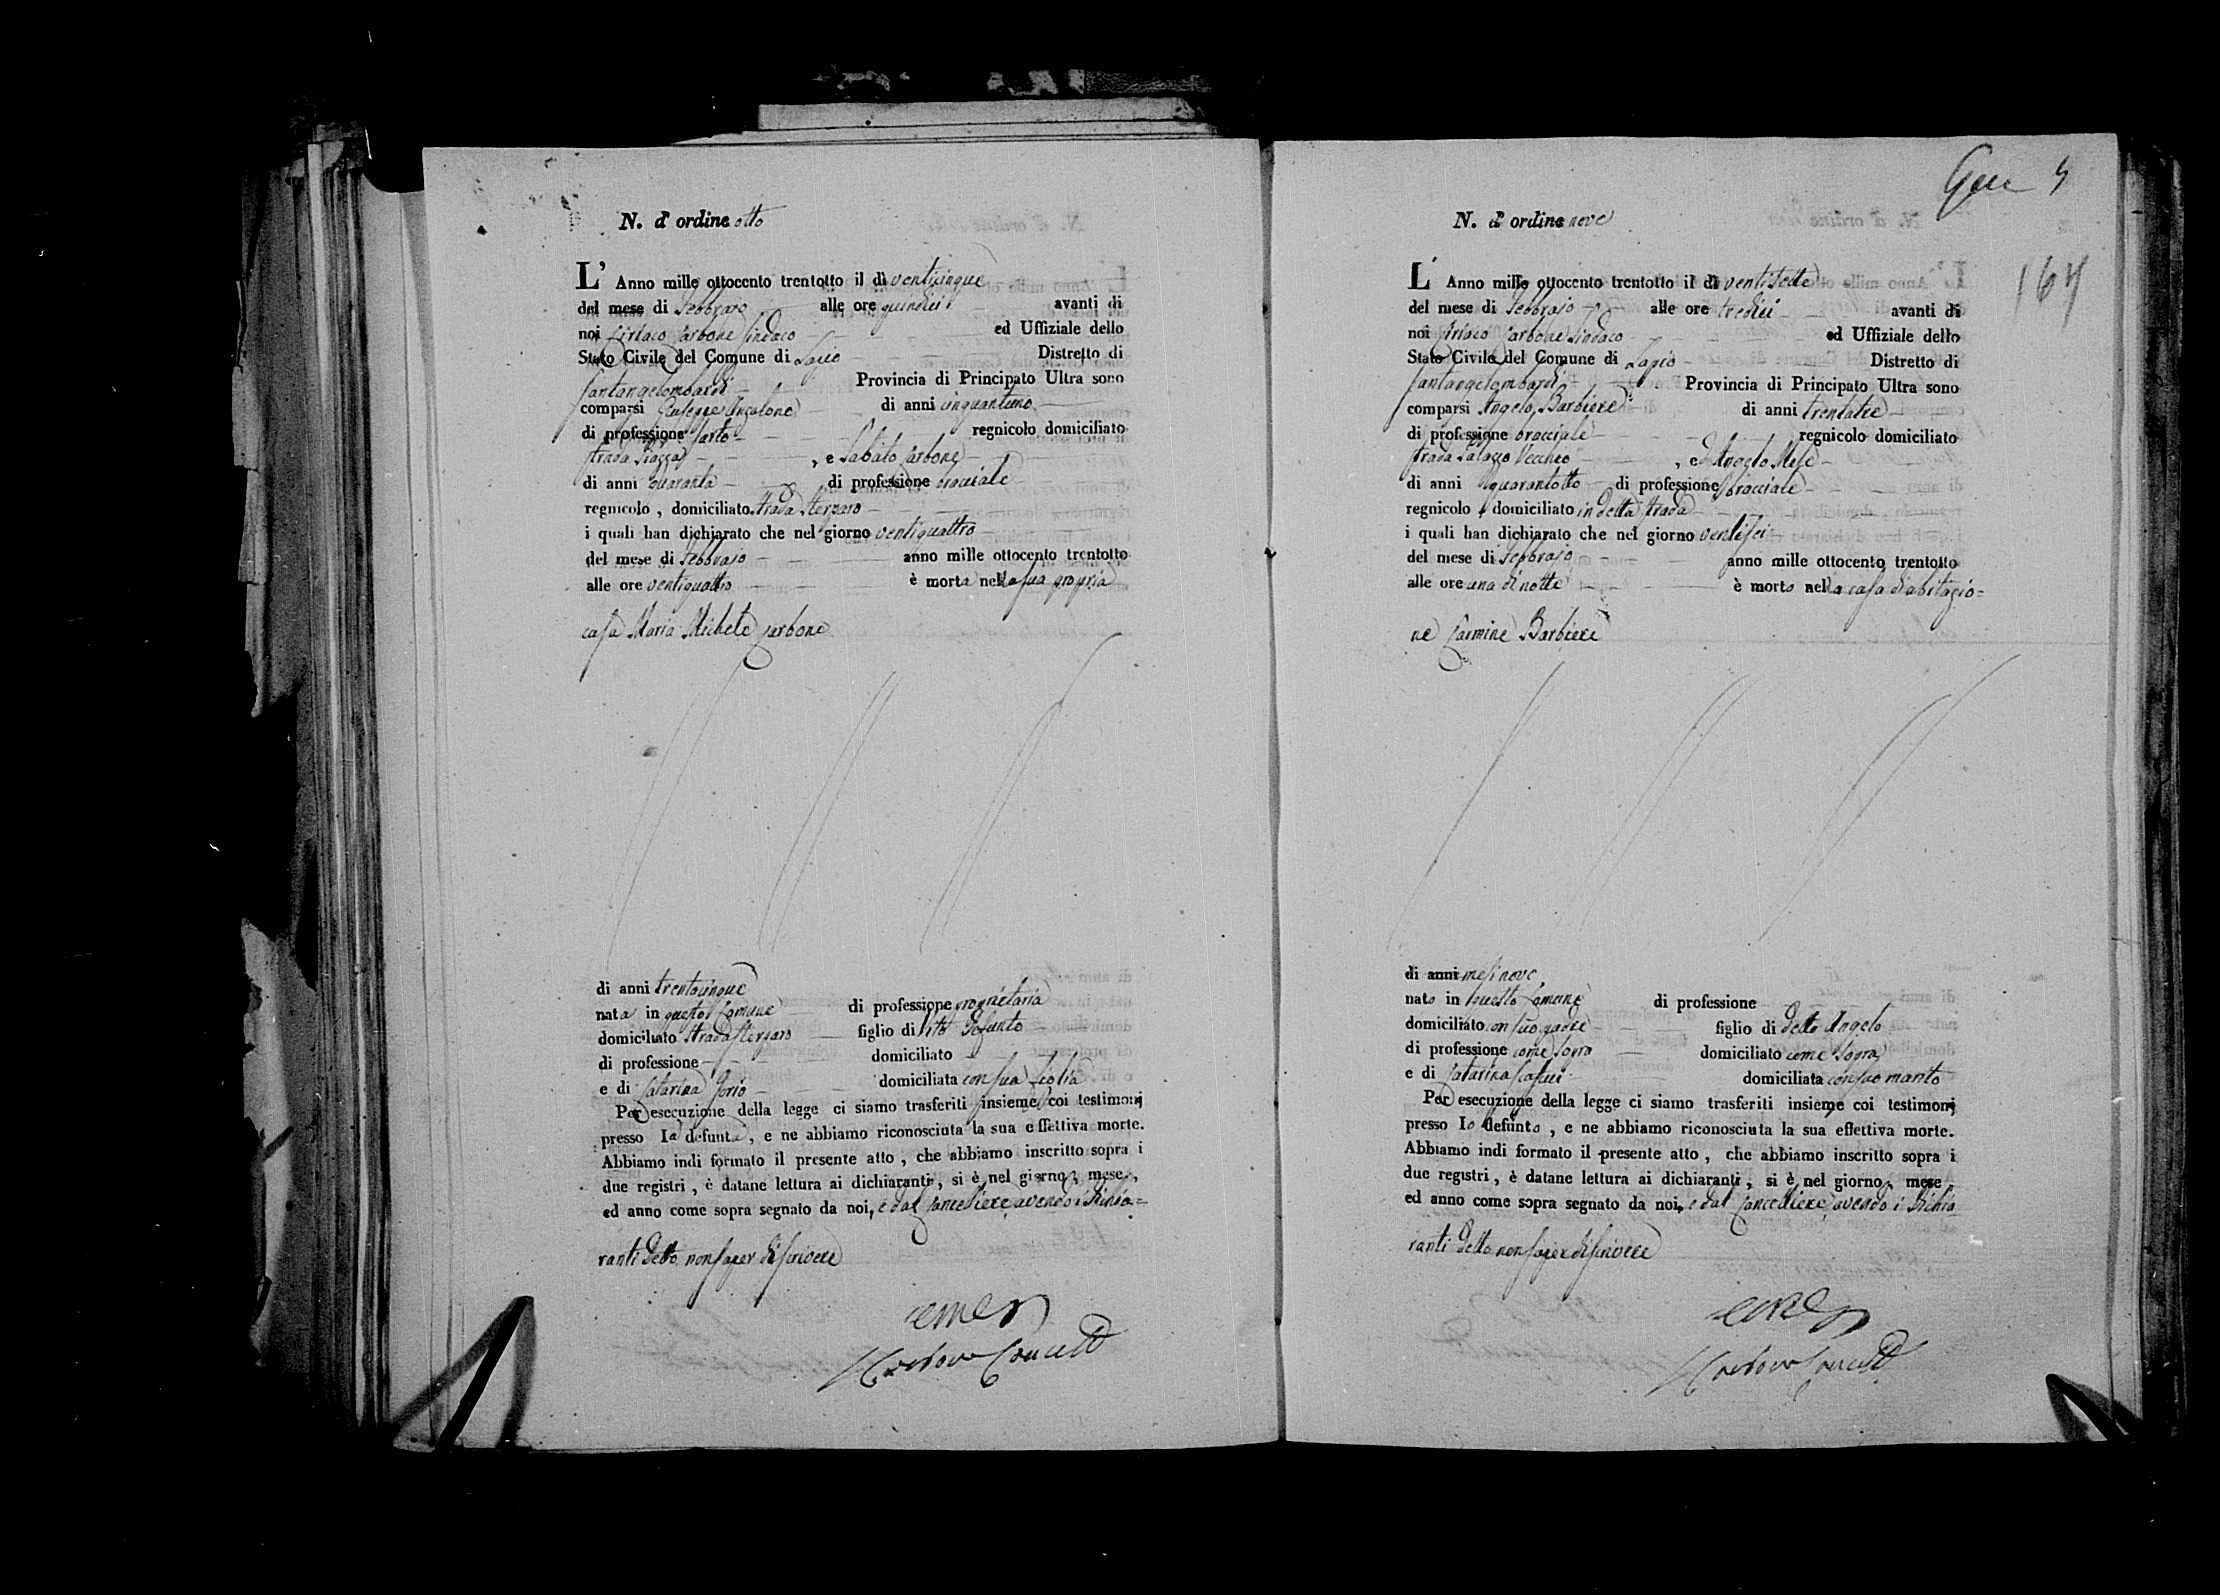 N. d' ordine otto
L' Anno mille ottocento trentotto il dì venticinque
del mese di Febbrajo alle ore quindici avanti di
noi Ciriaco Carbone Sindaco ed Uffiziale dello
Stato Civile del Comune di Lapio Distretto di
Santangelombardi Provincia di Principato Ultra sono
comparsi Giuseppe Anzalone di anni cinquantuno
di professione sarto regnicolo domiciliato
strada Piazza , e Sabato Carbone
di anni quaranta di professione bracciale
regnicolo , domiciliato strada
i quali han dichiarato che nel giorno ventiquattro
del mese di Febbrajo anno mille ottocento trentotto
alle ore ventiquattro è morta nella sua propria
casa Maria Michele Carbone
di anni trentacinque
nata in questo Comune di professione proprietaria
domiciliato strada figlio di Vito defunto
di professione domiciliato
e di Catarina Iorio domiciliata con sua figlia
Per esecuzione della legge ci siamo trasferiti insieme coi testimonj
presso la defunta , e ne abbiamo riconosciuta la sua effettiva morte.
Abbiamo indi formato il presente atto , che abbiamo inscritto sopra i
due registri , è datane lettura ai dichiaranti , si è nel giorno , mese ,
ed anno come sopra segnato da noi, e dal Cancelliere avendo i dichia=
ranti detto non saper di scrivere
N. d' ordine nove
Gen 9
167
L' Anno mille ottocento trentotto il dì ventisette
del mese di Febbrajo alle ore tredici avanti di
noi Ciriaco Carbone Sindaco ed Uffiziale dello
Stato Civile del Comune di Lapio Distretto di
Santangelombardi Provincia di Principato Ultra sono
comparsi Angelo Barbiere di anni trentatre
di professione bracciale regnicolo domiciliato
strada Palazzo Vecchio , e d'Angelo Mele
di anni quarantotto di professione bracciale
regnicolo , domiciliato in detta strada
i quali han dichiarato che nel giorno ventisei
del mese di Febbrajo anno mille ottocento trentotto
alle ore una di notte è morto nella casa d'abitazio=
ne Carmine Barbiere
di anni mesi nove
nato in questo Comune di professione
domiciliato con suo padre figlio di detto Angelo
di professione come sopra domiciliato come sopra
e di Catarina domiciliata con suo marito
Per esecuzione della legge ci siamo trasferiti insieme coi testimonj
presso lo defunto , e ne abbiamo riconosciuta la sua effettiva morte.
Abbiamo indi formato il presente atto , che abbiamo inscritto sopra i
due registri , è datane lettura ai dichiaranti , si è nel giorno , mese
ed anno come sopra segnato da noi, e dal Cancelliere avendo i dichia
ranti detto non saper di scrivere